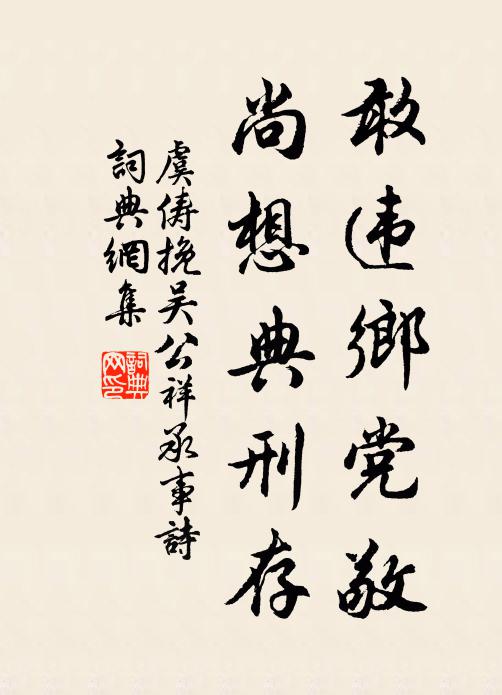 敢违鄉党敬
尚想典刑存
虞俦挽吴公祥承事詩
詞典網集
詞典
网印